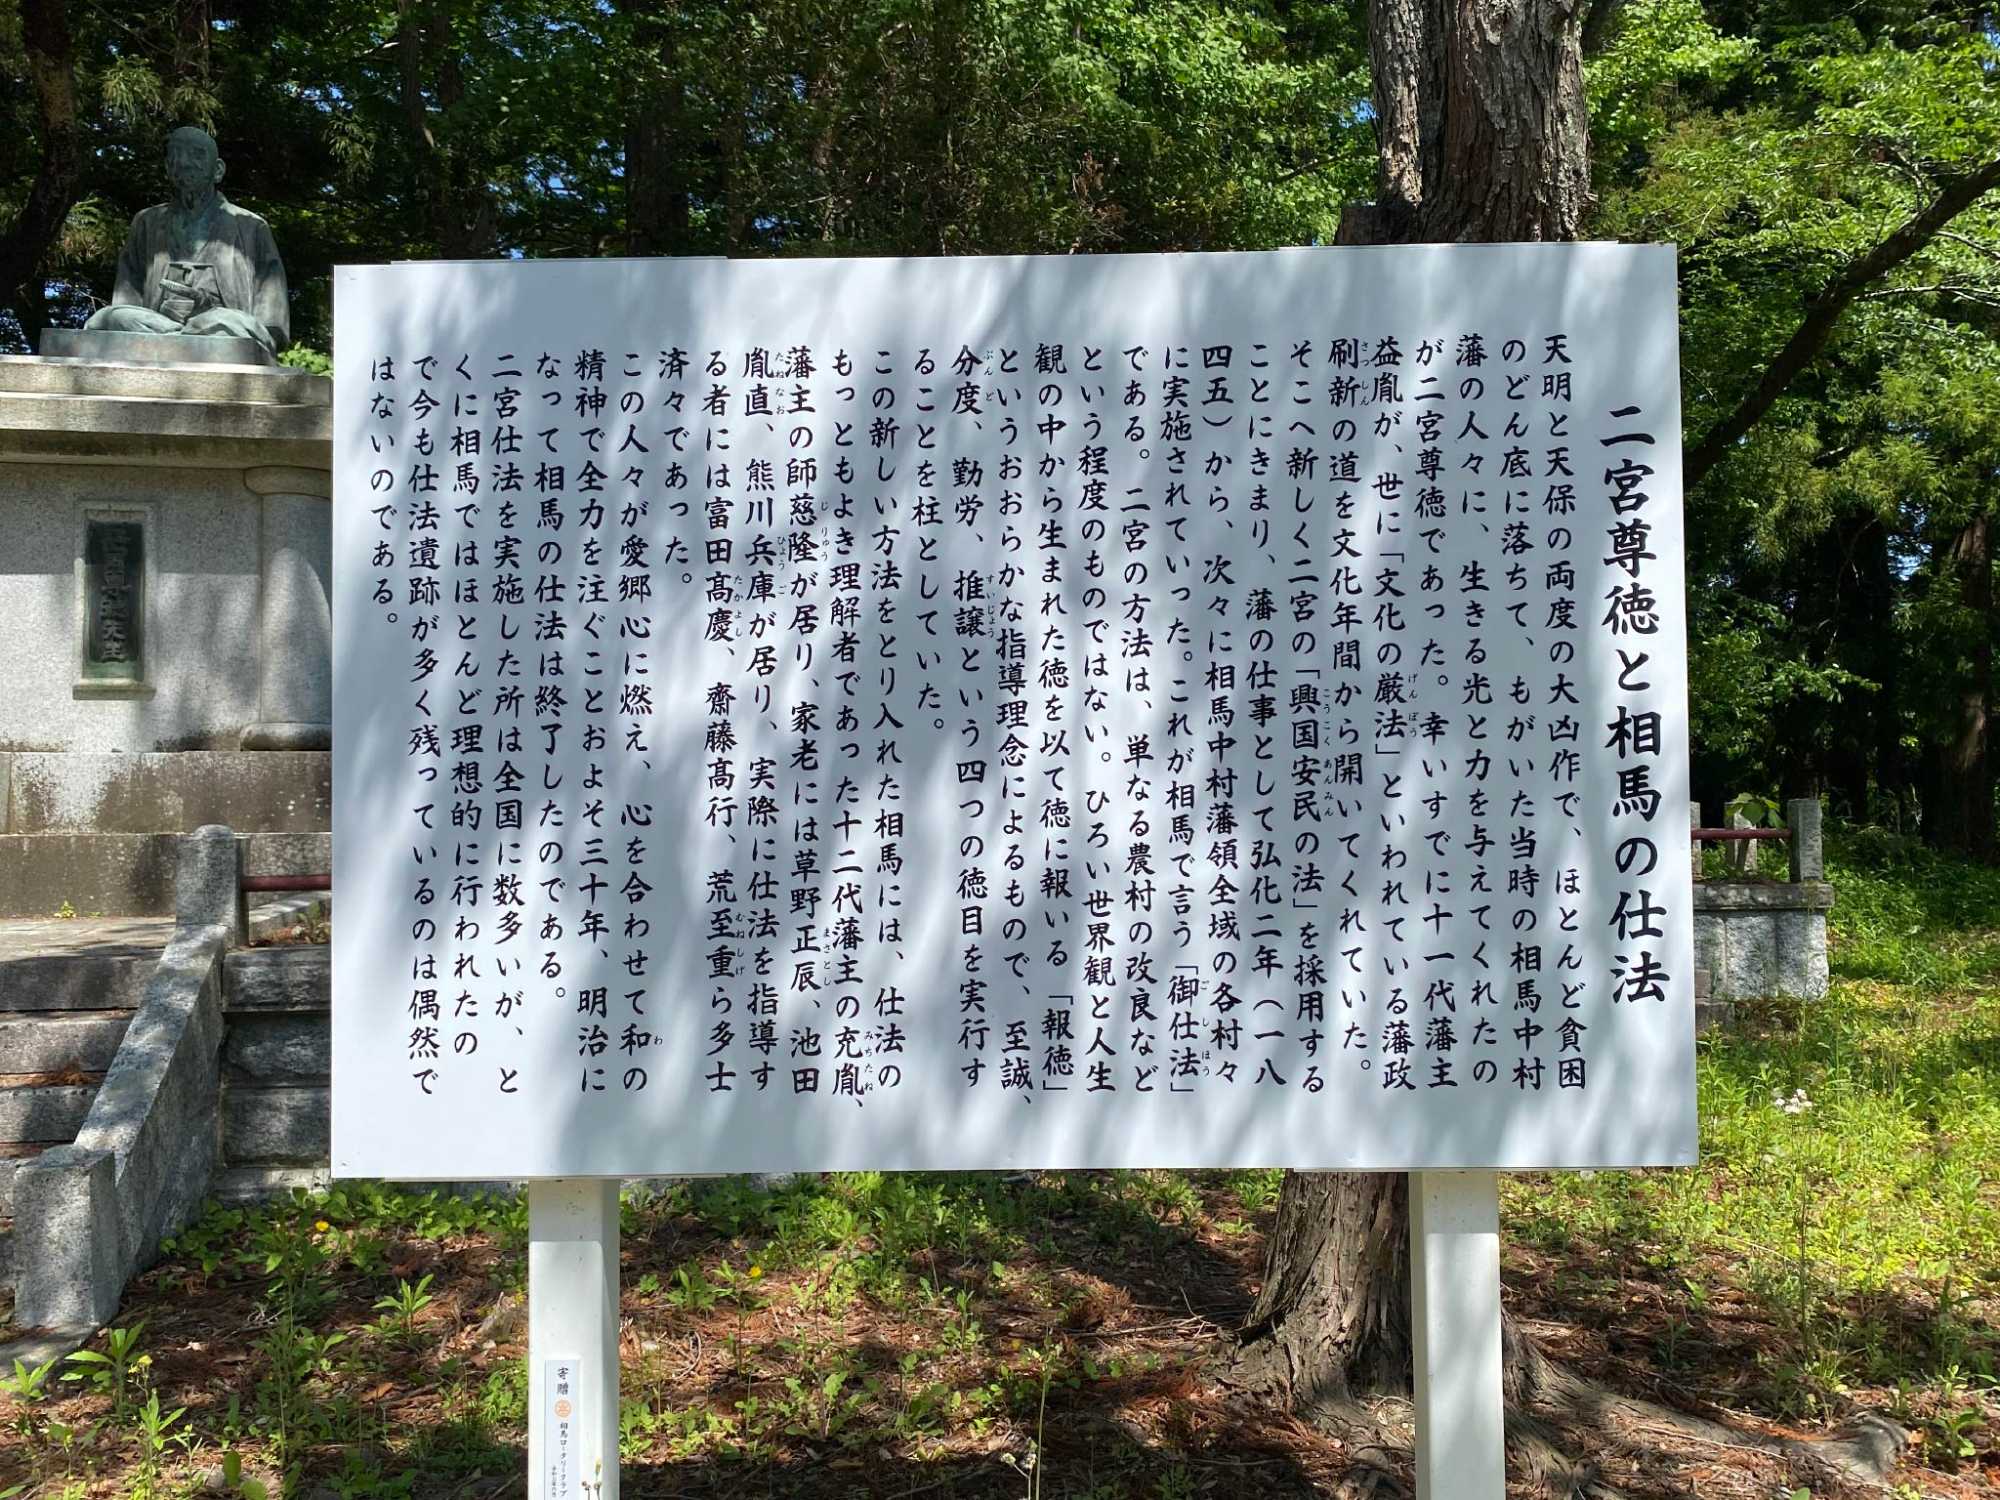 二宮尊徳と相馬の仕法
天明と天保の両度の大凶作で、ほとんど貧困
のどん底に落ちて、もがいた当時の相馬中村
藩の人々に、生きる光と力を与えてくれたの
が二宮尊徳であった。幸いすでに十一代藩主
益胤が、世に「文化の厳法」といわれている藩政
げんぽう
刷新の道を文化年間から開いてくれていた。
さっしん
そこへ新しく二宮の「興国安民の法」を採用する
こうこくあんみん
ことにきまり、藩の仕事として弘化二年(一八
四五)から、次々に相馬中村藩領全域の各村々
に実施されていった。これが相馬で言う「御仕法」
ごしほう
である。二宮の方法は、単なる農村の改良など
という程度のものではない。ひろい世界観と人生
観の中から生まれた徳を以て徳に報いる「報徳」
というおおらかな指導理念によるもので、至誠、
分度、勤労、推譲という四つの徳目を実行す
ぶんど すいじょう
ることを柱としていた。
この新しい方法をとり入れた相馬には、仕法の
もっともよき理解者であった十二代藩主の充胤、
みちたね
藩主の師慈隆が居り、家老には草野正辰、池田
じりゅう まさとし
胤直、熊川兵庫が居り、実際に仕法を指導す
たねなお ひょうご
る者には富田髙慶、齋藤髙行、荒至重ら多士
たかよし むねしげ
済々であった。
この人々が愛郷心に燃え、心を合わせて和の
わ
精神で全力を注ぐことおよそ三十年、明治に
なって相馬の仕法は終了したのである。
二宮仕法を実施した所は全国に数多いが、と
くに相馬ではほとんど理想的に行われたの
で今も仕法遺跡が多く残っているのは偶然で
はないのである。
寄贈 相馬ロータリークラブ